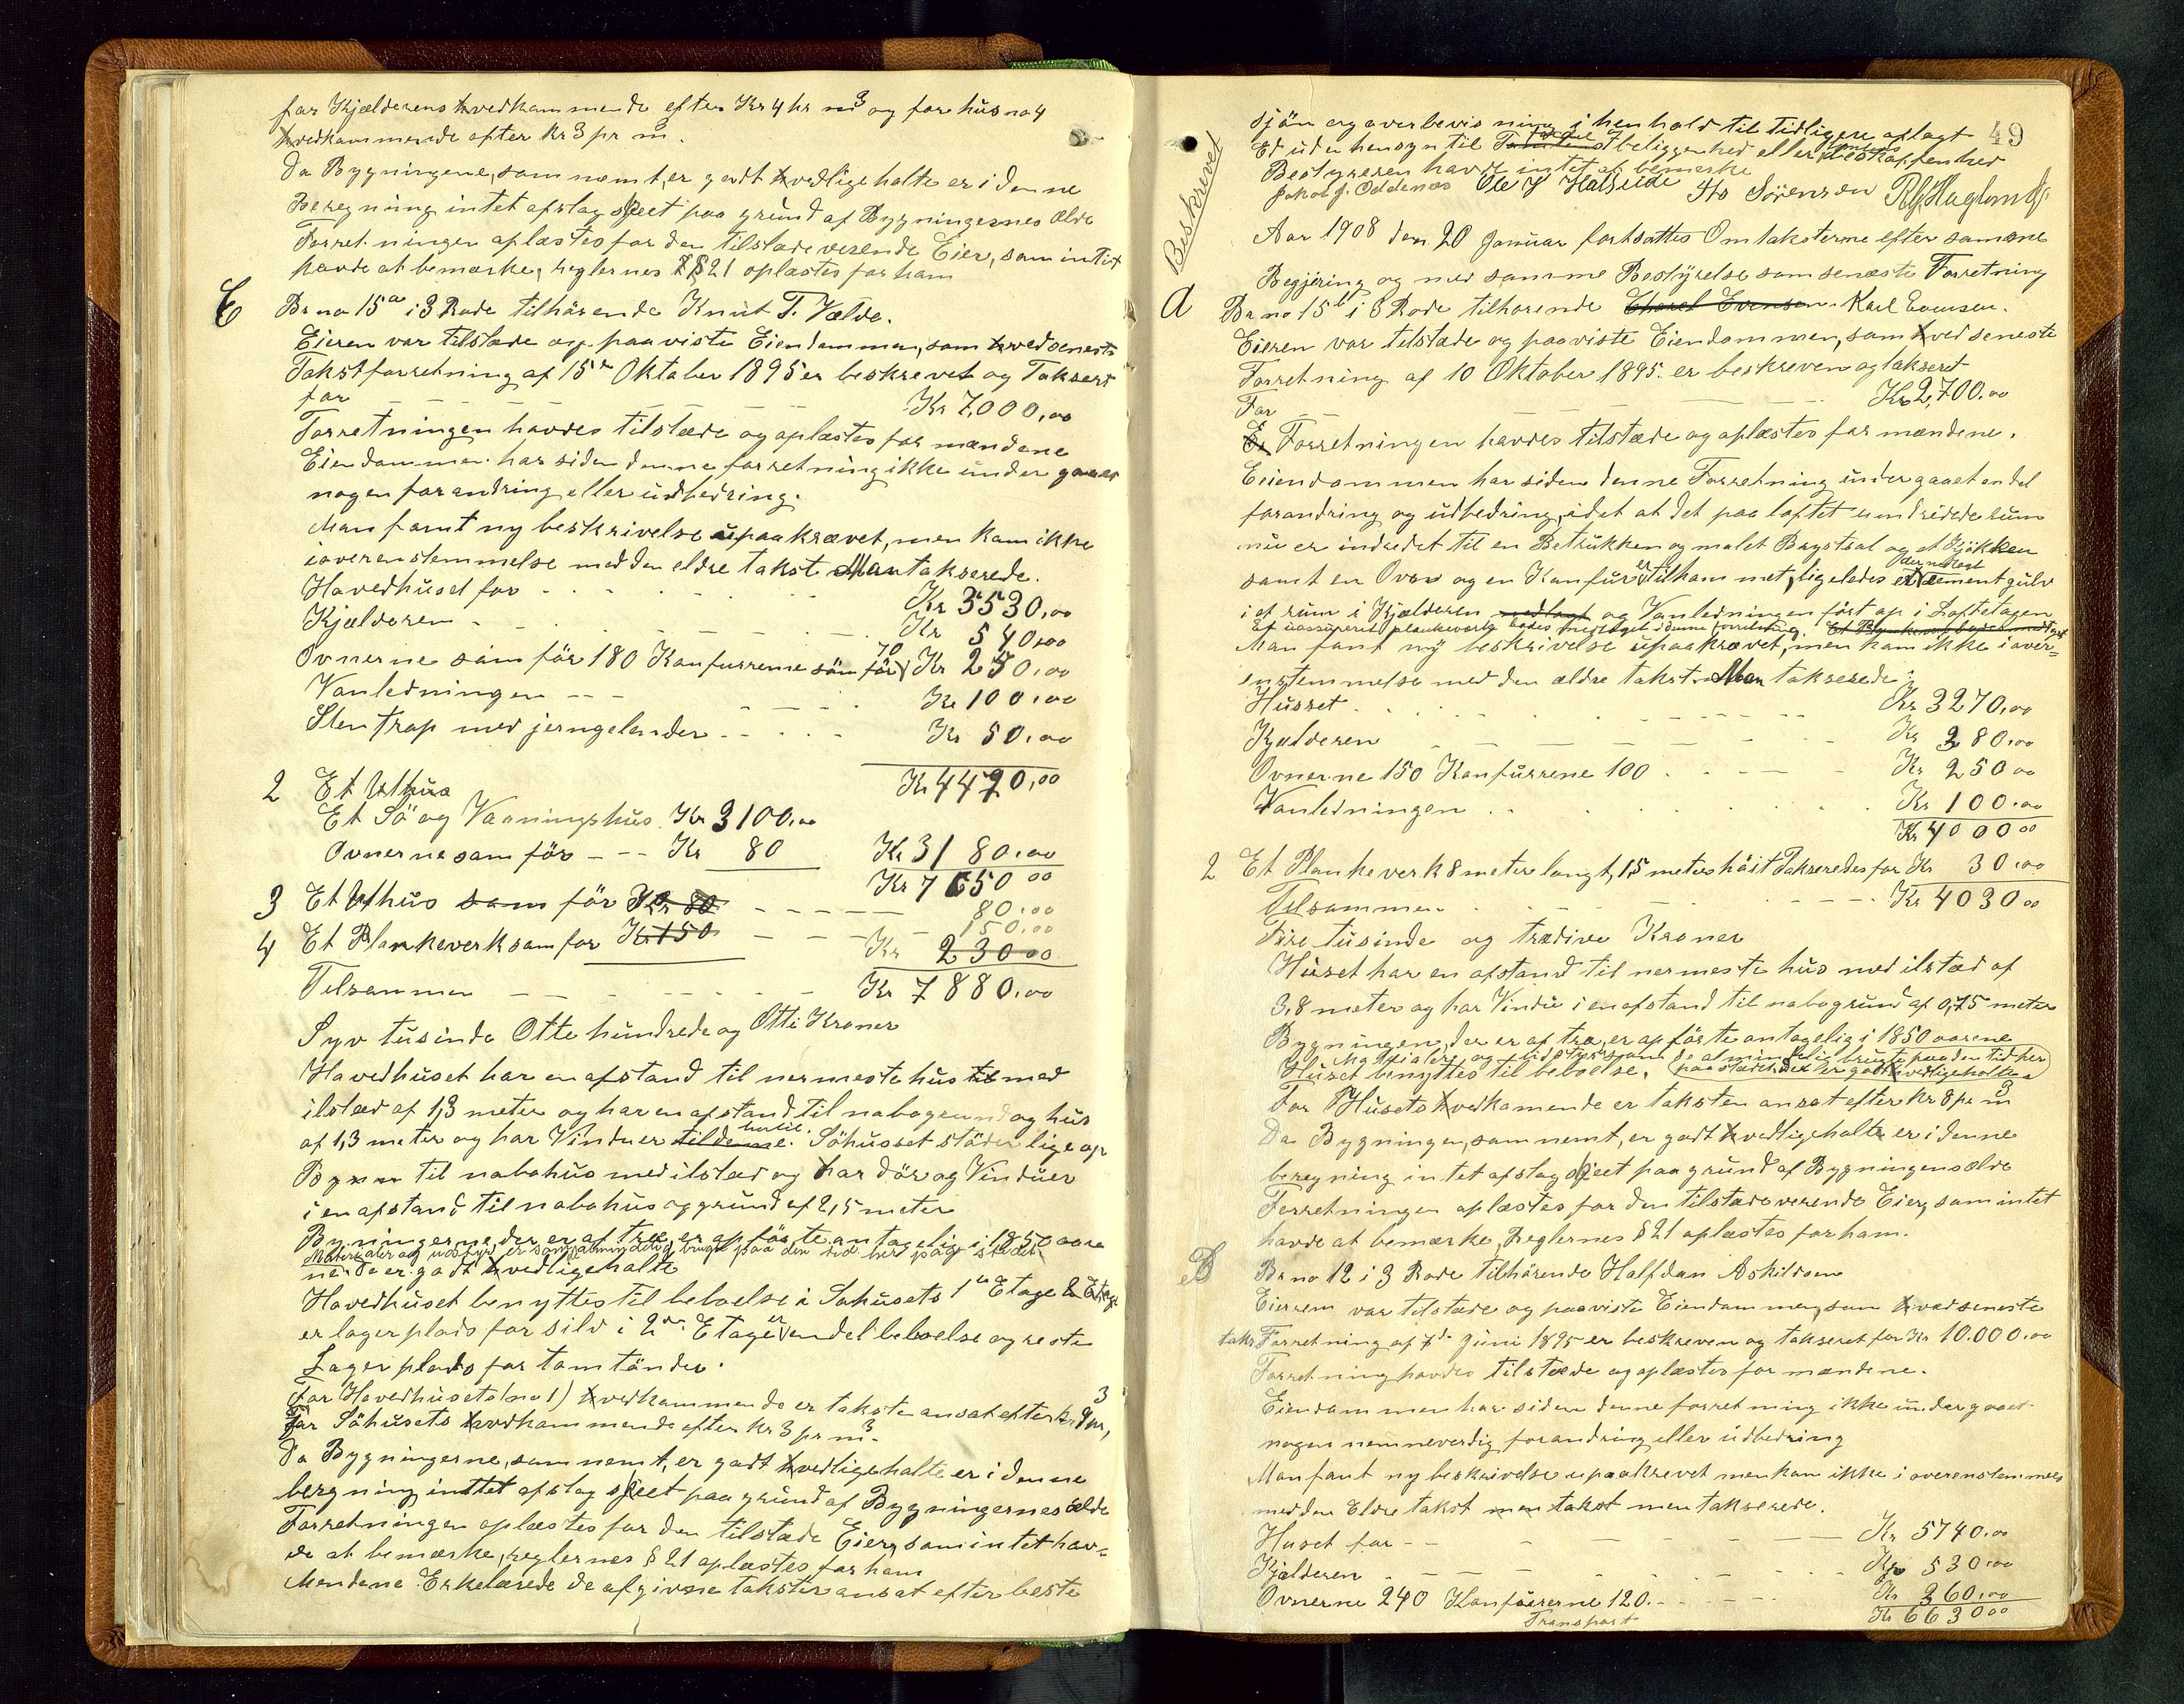 for Kjælderens hvedkammende efter Kr 4 pr m³ og for hus no 4
hvedkammende efter kr 3 pr m³.
Da Bygningene, som næmt, er godt hvedlige holte er i denne
Beregning intet afslag skeet paa grund af Bygningernes Elde
Forretningen oplæstes for den tilstædeverende Eier, som intet
havde at bemærke, reglernes § 21 oplæstes for ham
C Br no 15a i 3 Rode tilhörende Knut T. Vælde.
Eieren var tilstæde og paaviste Eiendommen, som hved seneste
Takstforretning af 15de Oktober 1895 er beskrevet og Taksert
for Kr 7,000,00
Forretningen havdes tilstæde og oplæstes for mændene
Eiendommen har siden denne forretning ikke under gaaet
nogen forandring eller udbedring.
Man fant ny beskrivelse upaakrævet, men kom ikke
i overenstemmelse med den eldre takst Man takserede.
Hovedhuset for Kr 3530,00
Kjælderen Kr 540,00
Ovnerne som för 180 Kanfurerne som för 70 Kr 250,00
Vanledningen Kr 100,00
Sten trap med jerngelender Kr 50,00
Kr 4470,00
2 Et Uthus
Et Sö og Vaaningshus Kr 3100,00
Ovnerne som för Kr 80 Kr 3180,00
Kr 7650 00
3 Et Uthus som för Kr 80 80,00
4 Et Plankeverk som for Kr 150 150,00
Kr 230 00
Tilsammen Kr 7880,00
Syv tusinde Otte hundrede og Otti Kroner
Hovedhuset har en afstand til nermeste hus til med
ilsted af 1,3 meter og har en afstand til nabogrund og hus
af 1,3 meter og har Vinduer til denne. Söhuset stöder lige op
til nabohus med ilsted og har dör og Vinduer
i en afstand til nabohus og grund af 2,5 meter
Bygningerne, der er af træ, er opförte antagelig i 1850 aare
Materialer og udstyr er som almindelig brugt paa den tid her paa stedet
ne. De er godt hvedligeholte
Hovedhuset benyttes til beboelse i Söhusets 1ste Etage & Etage
er lagerplads for sild i 2den Etage er en del beboelse og reste
Lagerplads for tomtönder.
For Hovedhusets (no 1) hvedkammende er taksten ansat efter kr 9 pr m³,
For Söhusets hvedkammende efter kr 3 pr m³.
Da Bygningerne, som nemt, er godt hvedligeholte er i denne
beregning inttet afslag skeet paa grund af Bygningernes ælde
Forretningen oplæstes for den tilstæde Eier, som intet hav=
de at bemærke, reglernes § 21 oplæstes for ham
Mendene Erkelærede de afgivne takster ansat efter beste
49
Beskrevet
sjön og overbevisning i henhold til tidligere aflagt
Ed uden hensyn til beliggenhed eller beskaffenhed
Bestyreren havde intet at bemærke
Jakob J. Oddenæs Ole J Halseide Hs Sörensen
Aar 1908 den 20 Januar fortsattes Omtaksterne efter samme
Begjæring og med samme Bestyrelse som senæste Forretning
A Br no 15b i 3 Rode tilhorende Karl Evensen.
Eieren var tilstæde og paaviste Eiendommen, som hved seneste
Forretning af 10 Oktober 1895 er beskreven og takseret
For Kr 2,700,00
Forretningen havdes tilstæde og oplæstes for mændene.
Eiendommen har siden denne Forretning undergaaet en del
forandring og udbedring, idet at det paa loftet uindridede rum
nu er indredet til en Betrukken og malet Bagstsal og et Kjökken
samt en Ovn og en Kanfur er tilkommet, ligeledes er der nedlagt cementgulv
i et rum i Kjælderen og Vanledningen fört op i Loftetagen
Et uassureret plankeverk bades medtaget i denne forretning.
Man fant ny beskrivelse upaakrævet, men kom ikke i over=
enstemmelse med den ældre takst. Men takserede:
Husset Kr 3270,00
Kjælderen Kr 280,00
Ovnerne 150 Kanfurrene 100 Kr 250 00
Vanledningen Kr 100,00
Kr 4000 00
2 Et Plankeverk 8 meter langt, 1,5 meter höit Takseredes for Kr 30,00
Tilsammen Kr 4030 00
Fire tusinde og trædive Kroner
Huset har en afstand til nermeste hus med ilsted af
3,8 meter og har Vindu i en afstand til nabogrund af 0,75 meter
Bygningen, der er af træ, er opförte antagelig i 1850 aarene
Materialer og udstyr som de almindelig brugte paa den tid her
Huset benyttes til beboelse. paa stedet. Det er godt hvedligeholte
For Husets hvedkamende er taksten ansat efter kr 8 pr m³
Da Bygningen, som nemt, er godt hvedligeholte er i denne
beregning intet afslag skeet paa grund af Bygningens ælde
Forretningen oplæstes for den tilstædeverende Eier, som intet
havde at bemærke, Reglernes § 21 oplæstes for ham.
B Br no 12 i 3 Rode tilhörende Halfdan Askildsen
Eieren var tilstæde og paaviste Eiendommen, som hved seneste
takst Forretning af 7de Juni 1895 er beskreven og takseret for Kr 10.000,00
Forretning havdes tilstæde og oplæstes for mændene.
Eiendommen har siden denne forretning ikke undergaaet
nogen nemneverdig forandring eller udbedring
Man fant ny beskrivelse upaakrevet men kom ikke i overenstemmels
med den Eldre takst men takst men takserede.
Huset for Kr 5740,00
Kjælderen Kr 530,00
Ovnerne 240 Kanfurerne 120 Kr 360,00
Transport Kr 6630 00